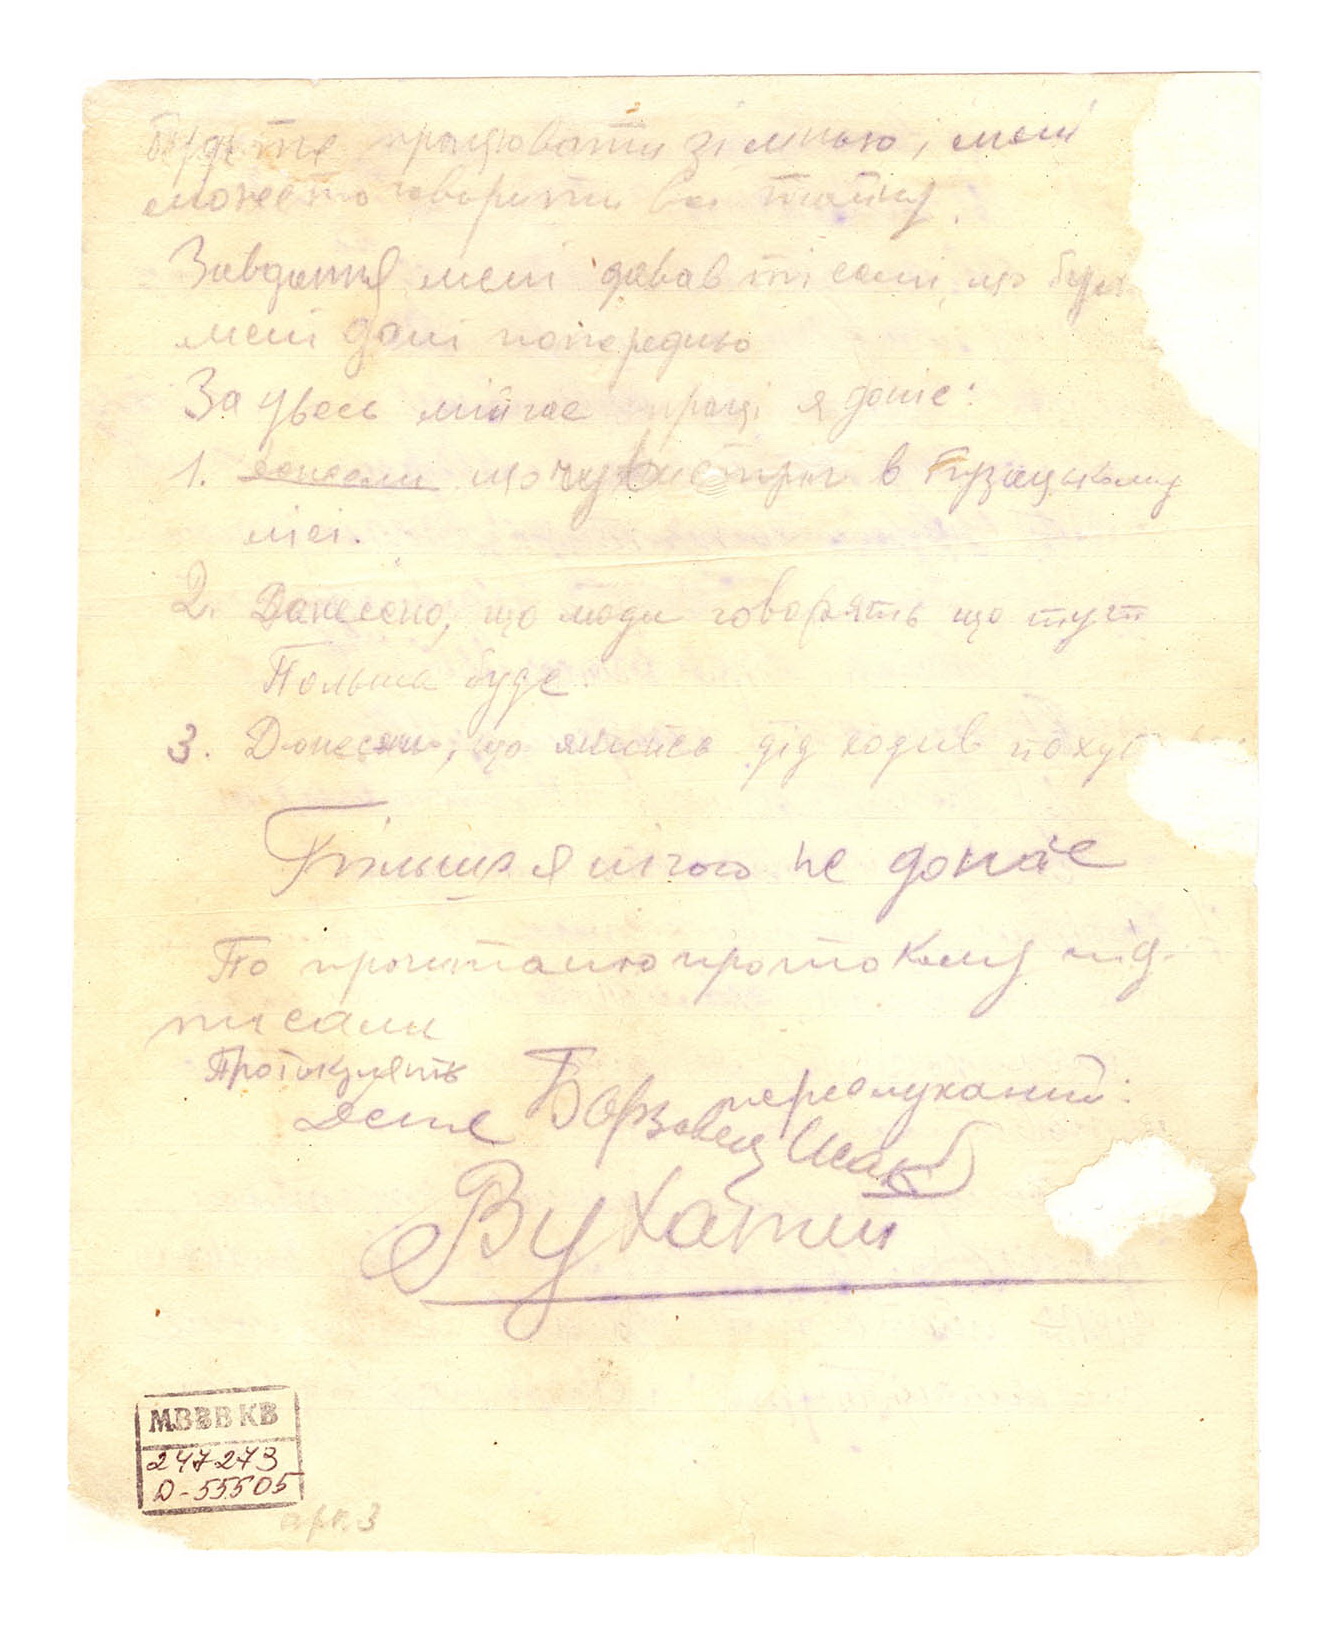 Будете працювати зімною, мені
можете говорити всі тайни.
Завдання мені давав ті самі, що були
мені дані попередньо
За увесь мій час праці я доніс:
1. що чув в Грузецькому
лісі.
2. Донесено, що люди говорять що тут
Польша буде.
3. Донесено, що якийсь дід ходив по
Більше я нічого не доніс
По прочитанню протоколу під-
писали
Протокулянт переслуханий:
Борзовец Исак
Вухатий
МВВВ КВ
247273
D-55505
арк. 3